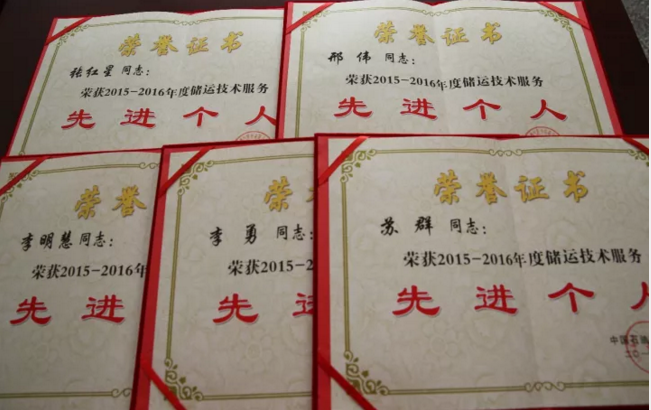 荣誉证书
张红星 同志：
荣获2015-2016年度储运技术服务
先进个人
荣誉证书
邢伟 同志：
荣获2015-2016年度储运技术服务
先进个人
荣誉
李明慧 同志：
荣获2015-2016年
先进
荣
李勇 同志：
荣获2015-2
先进
荣誉证书
苏群 同志：
荣获2015-2016年度储运技术服务
先进个人
中国石油
二〇一